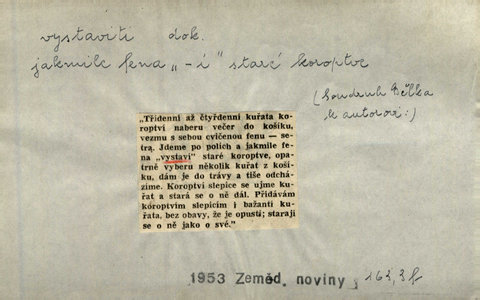 vystaviti dok.
jakmile fena „-í" staré koroptve
(Soudruh Bělka
k autorovi:)
„Třídenní až čtyřdenní kuřata ko-
roptví naberu večer do košíku,
vezmu s sebou cvičenou fenu — se-
tra. Jdeme po polích a jakmile fe-
na „vystaví" staré koroptve, opa-
trně vyberu několik kuřat z koší-
ku, dám je do trávy a tiše odchá-
zíme. Koroptví slepice se ujme ku-
řat a stará se o ně dál. Přidávám
koroptvím slepicím i bažantí ku-
řata, bez obavy, že je opustí; starají
se o ně jako o své."
1953 Zeměd. noviny 162,3